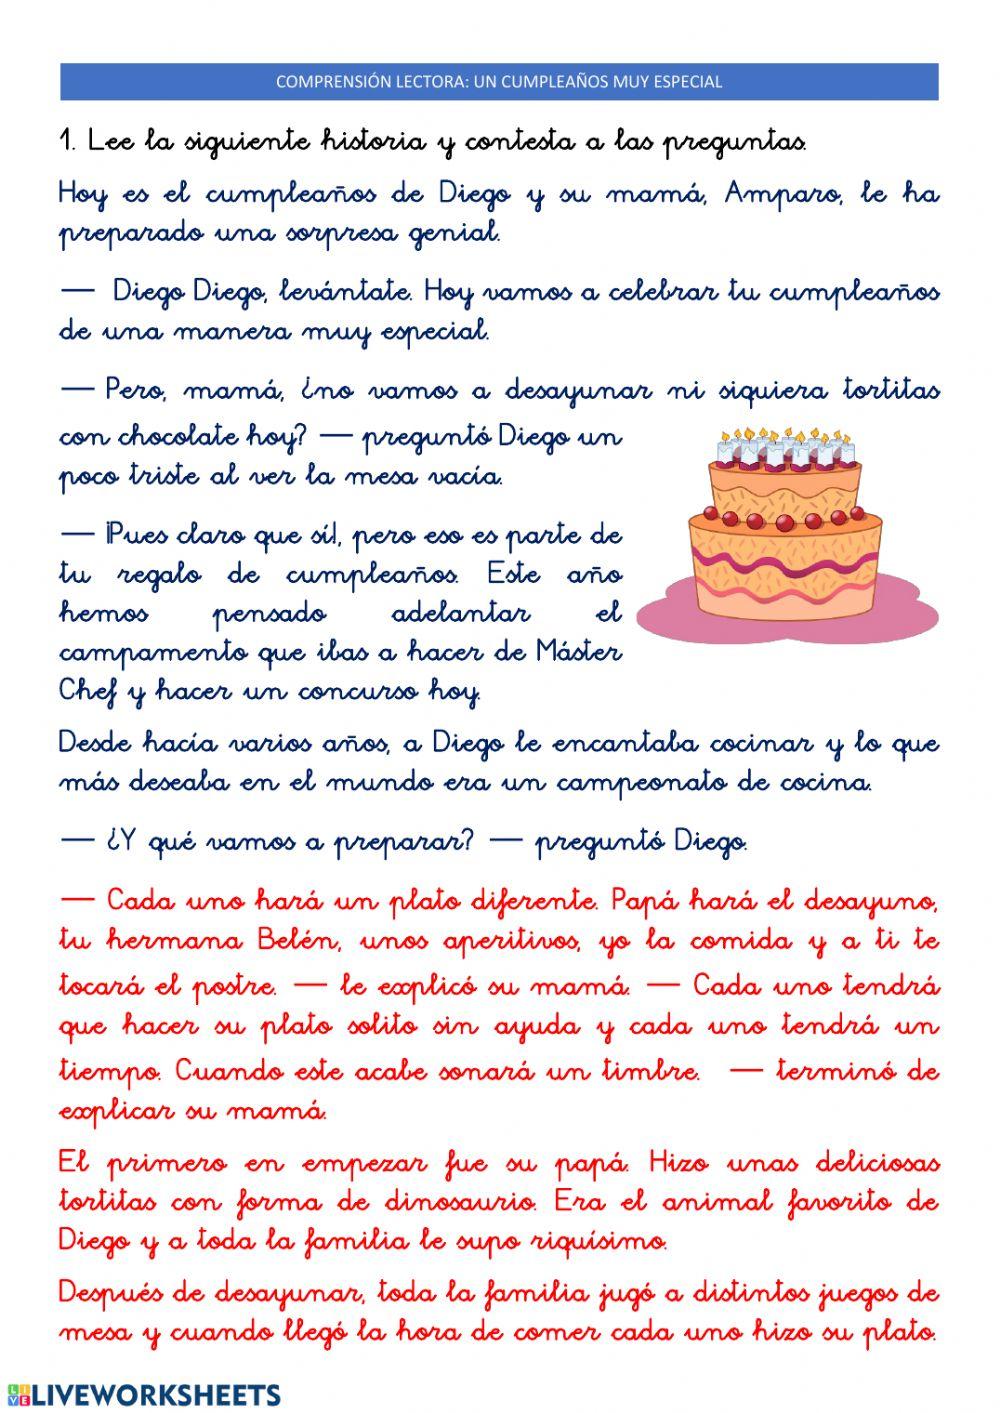 COMPRENSIÓN LECTORA: UN CUMPLEAÑOS MUY ESPECIAL
1. Lee la siguiente historia y contesta a las preguntas.
Hoy es el cumpleaños de Diego y su mamá, Amparo, le ha
preparado una sorpresa genial.
— Diego Diego, levántate. Hoy vamos a celebrar tu cumpleaños
de una manera muy especial.
— Pero, mamá, ¿no vamos a desayunar ni siquiera tortitas
con chocolate hoy? — preguntó Diego un
poco triste al ver la mesa vacía.
— ¡Pues claro que sí!, pero eso es parte de
tu regalo de cumpleaños. Este año
hemos pensado adelantar el
campamento que ibas a hacer de Máster
Chef y hacer un concurso hoy.
Desde hacía varios años, a Diego le encantaba cocinar y lo que
más deseaba en el mundo era un campeonato de cocina.
— ¿Y qué vamos a preparar? — preguntó Diego.
— Cada uno hará un plato diferente. Papá hará el desayuno,
tu hermana Belén, unos aperitivos, yo la comida y a ti te
tocará el postre. — le explicó su mamá. — Cada uno tendrá
que hacer su plato solito sin ayuda y cada uno tendrá un
tiempo. Cuando este acabe sonará un timbre. — terminó de
explicar su mamá.
El primero en empezar fue su papá. Hizo unas deliciosas
tortitas con forma de dinosaurio. Era el animal favorito de
Diego y a toda la familia le supo riquísimo.
Después de desayunar, toda la familia jugó a distintos juegos de
mesa y cuando llegó la hora de comer cada uno hizo su plato.
LIVE LIVEWORKSHEETS